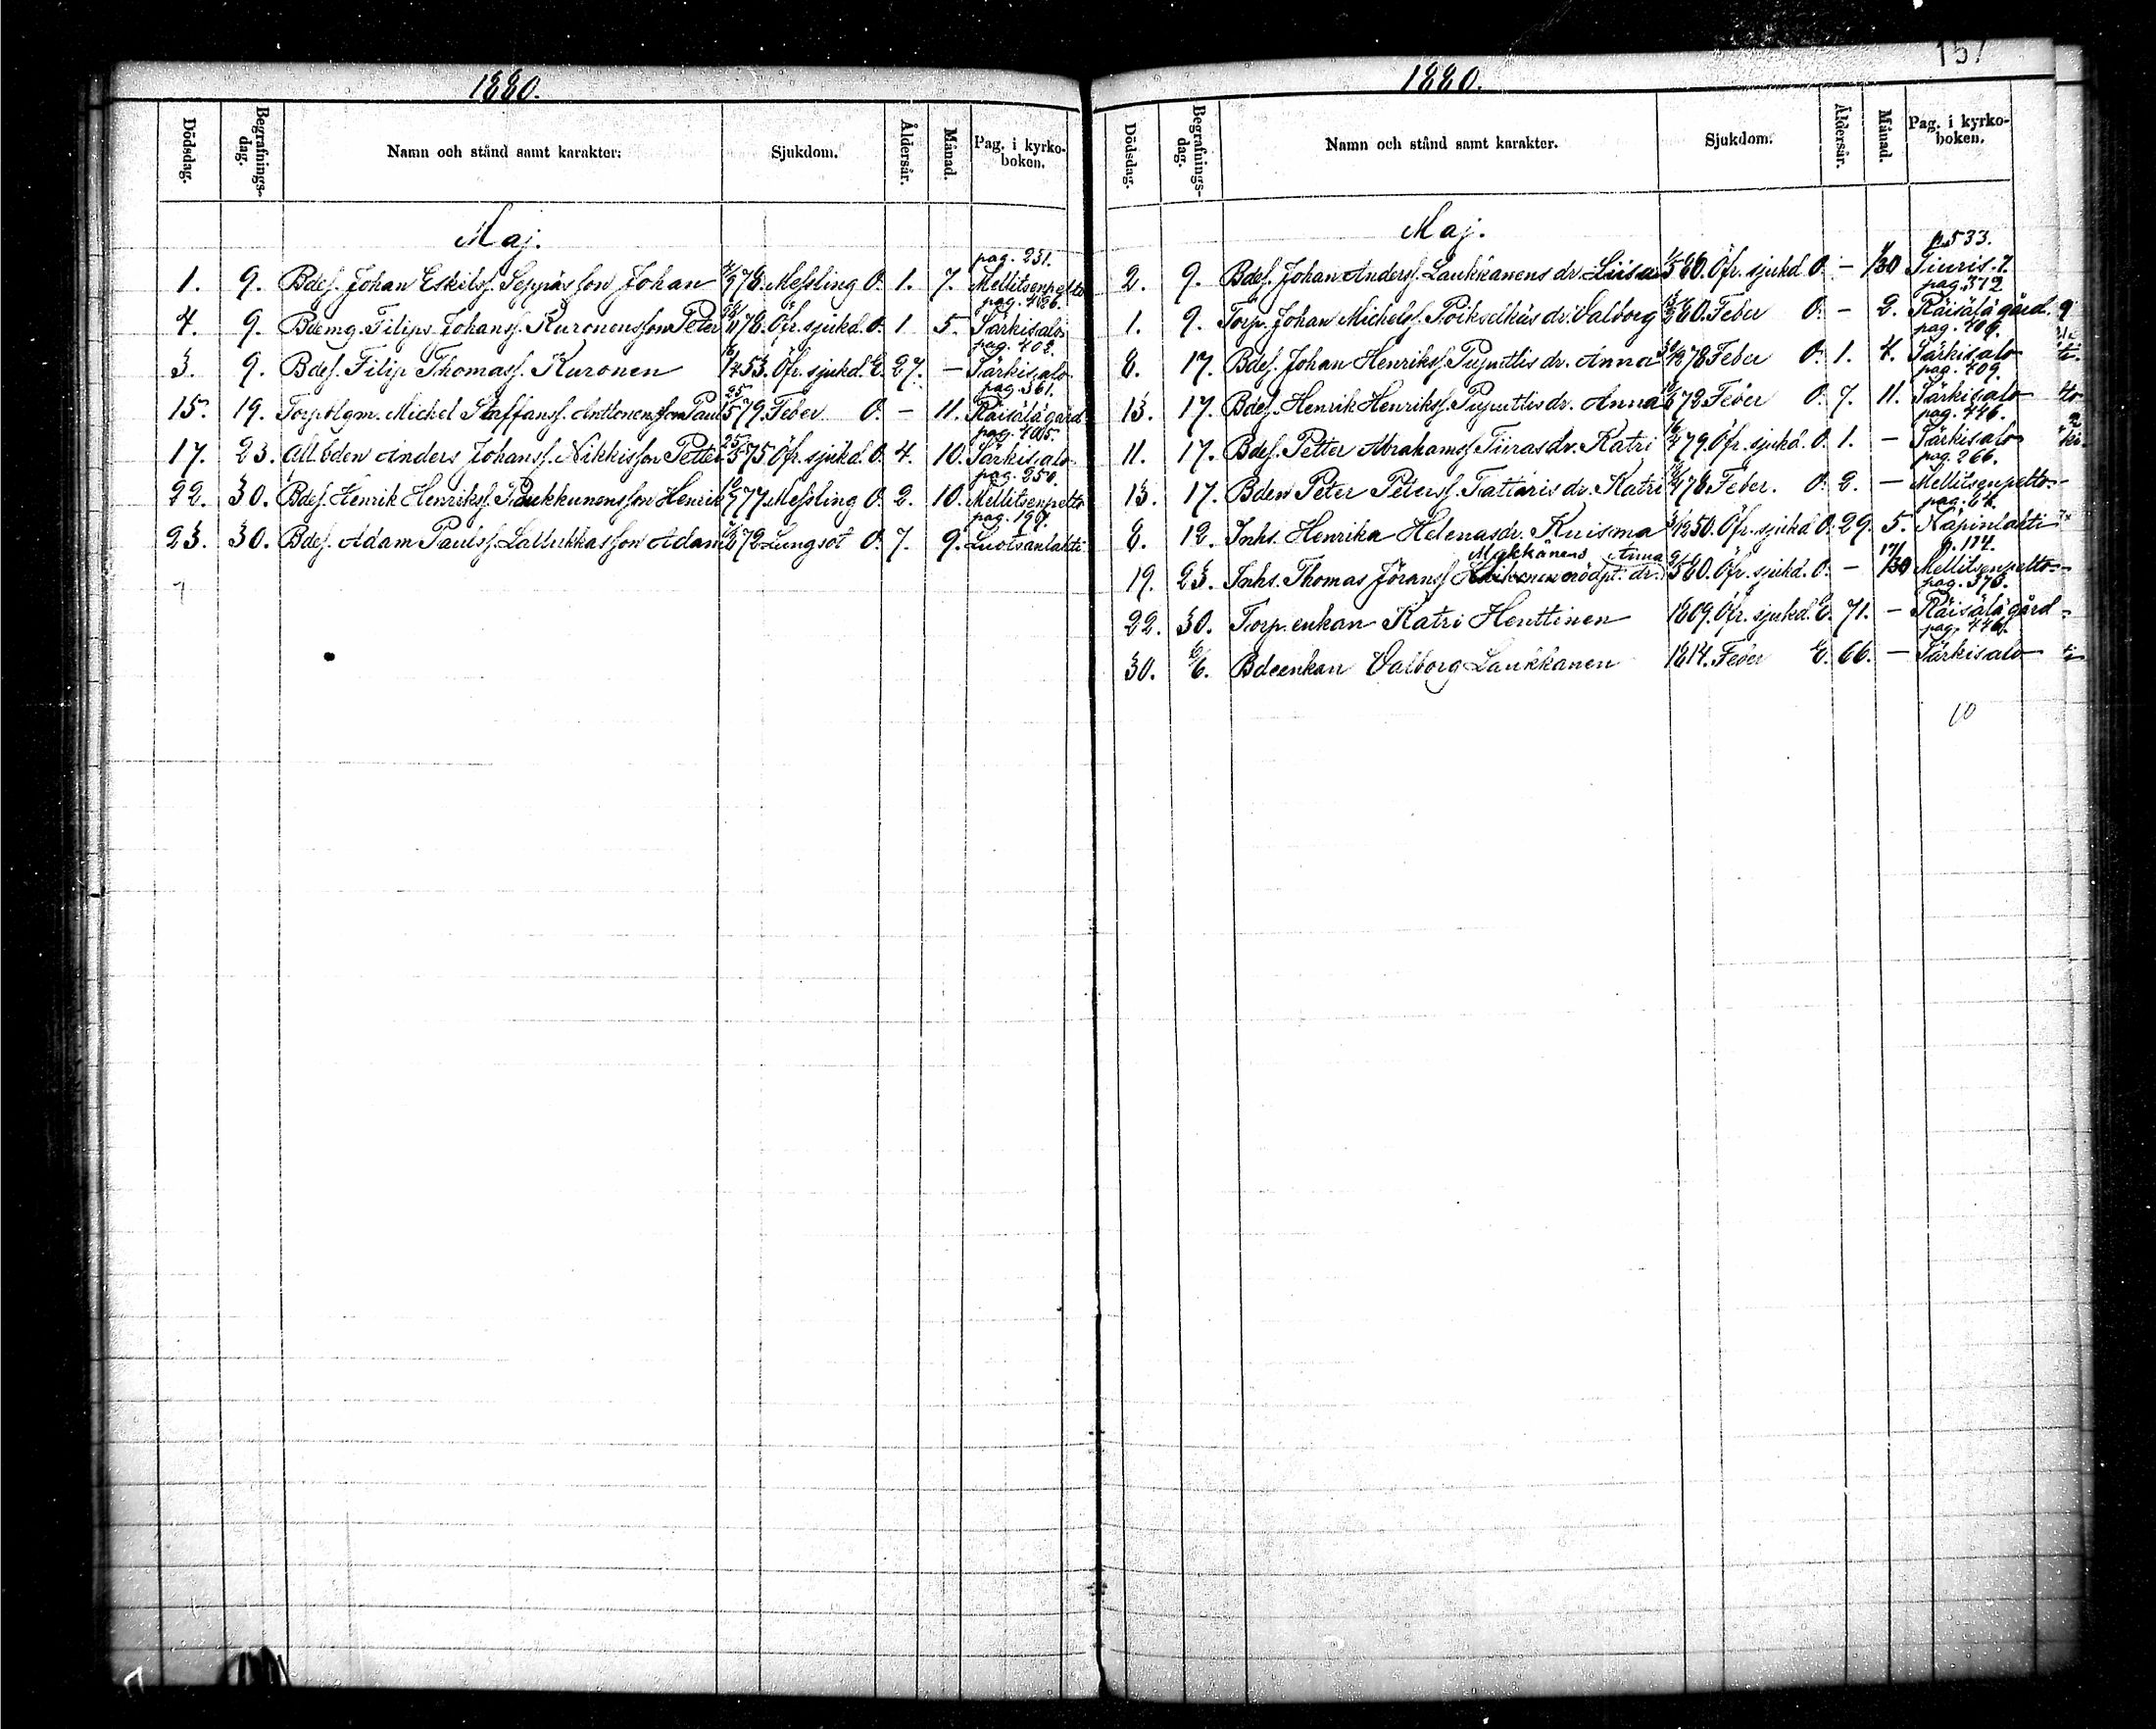 1880.
Dödsdag. Begrafnings-dag. Namn och stånd samt karakter: Sjukdom. Åldersår. Månad. Pag. i kyrko-boken.
Maj.
pag. 231.
1. 9. Bdes. Johan Eskilss. Seppäs son Johan 4/9 78. Messling O. 1. 7. Mellitsenpelto
pag. 426.
4. 9. Bdemg. Filips Johanss. Kuronens son Peter 78. Öfr. sjukd. O. 1 5. Särkisalo
pag. 402.
3. 9. Bdes. Filip Thomass. Kuronen 53. Öfr. sjukd. E. 27. – Särkisalo
pag. 361.
15. 19. Torpolgm. Michel Staffanss. Anttonens son Paul 25/5 79. Feber O. – 11. Räisälä gård
pag. 405.
17. 23. Anders Johanss. Nikkis son Petter 25/5 75 Öfr. sjukd. O. 4. 10. Särkisalo
pag. 250.
22. 30. Bdes. Henrik Henrikss. Paukkunens son Henrik 77 Messling O. 2. 10. Mellitsenpelto
pag. 197.
23. 30. Bdes. Adam Paulss. Lallukkas son Adam 72 Lungsot O. 7. 9. Luotsanlahti
7
157
1880.
Dödsdag. Begrafnings-dag. Namn och stånd samt karakter. Sjukdom. Åldersår. Månad. Pag. i kyrko-boken.
Maj.
p. 533.
2. 9. Bdes. Johan Anderss. Laukkanens dr. Liisa 1/5 80. Öfr. sjukd O. – 1/30 Tiuris.
pag. 312
1. 9. Torp. Johan Michelss. Poikselkäs dr. Valborg 80. Feber O. – 2. Räisälä gård.
pag. 409.
8. 17. Bdes. Johan Henrikss. Pujuttlis dr. Anna 78 Feber O. 1. 4. Särkisalo
pag. 409.
13. 17. Bdes. Henrik Henrikss. Pujuttlis dr. Anna 72 Feber O. 7. 11. Särkisalo
pag. 446.
11. 17. Bdes. Petter Abrahamss. Tiiras dr. Katri 79. Öfr. sjukd. O. 1. – Särkisalo
pag. 266.
13. 17. Bden Peter Peterss. Tattaris dr. Katri 78. Feber. O. 2. – Mellitsenpelto
pag. 64.
8. 12. Inhs. Henrika Helenasdr. Kuisma 50. Öfr. sjukd O. 29. 5. Näpinlahti
Makkanens Anna 17/ p. 114.
19. 23. Inhs. Thomas Jöranss. nödpt. dr. 80. Öfr. sjukd. O. – /30 Mellitsenpelto
pag. 373.
22. 30. Torp. enkan Katri Henttinen 1809. Öfr. sjukd. E. 71. – Räisälä gård
pag. 446.
30. 6/6. Bdeenkan Valborg Laukkanen 1814. Feber E. 66. – Särkisalo
10